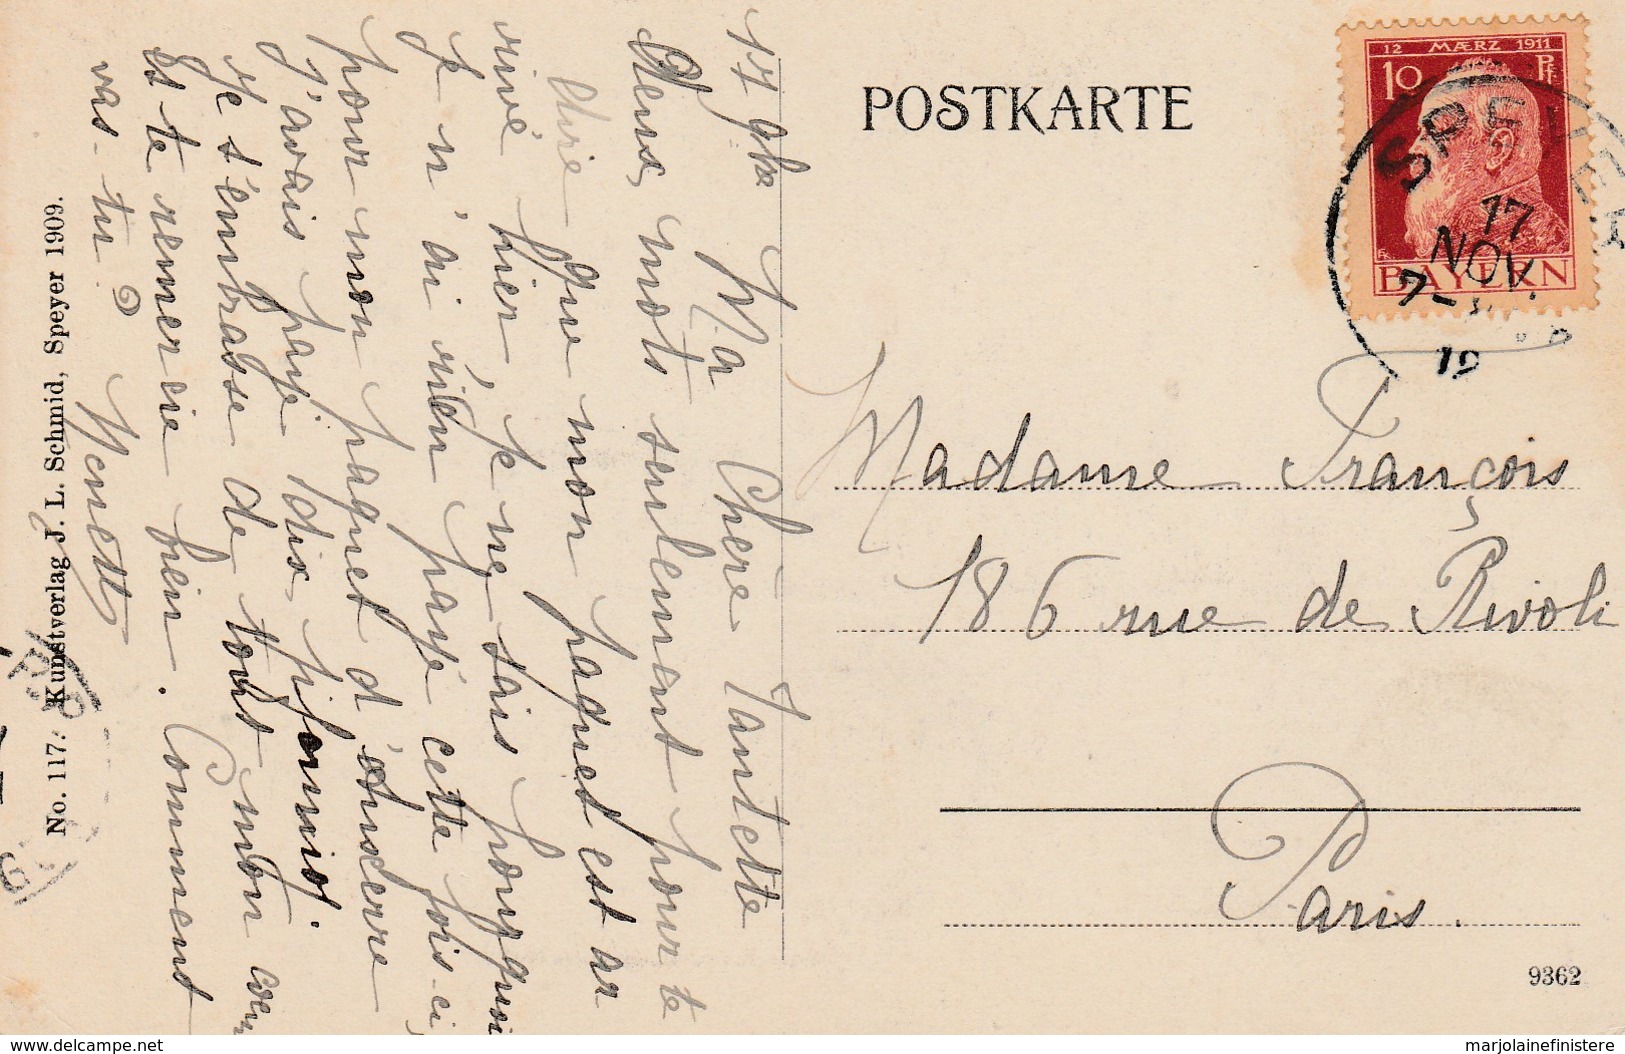 POSTKARTE
12 MÆRZ 1911
10 Pf.
BAYERN
SPEYER
17
NOV.
7-
Madame François
186 rue de Rivoli
Paris.
9362
17 9bre
Ma Chère Tantette
Deux mots seulement pour te
dire que mon paquet est ar
rivé hier, je ne sais pourquoi
je n'ai rien payé cette fois-ci,
pour mon paquet d'
j'avais payé dix pfennig.
Je t'embrasse de tout mon cœur
et te remercie bien. Comment
vas-tu?
No. 117. Kunstverlag J. L. Schmid, Speyer 1909.
www.delcampe.net
marjolainefinistere